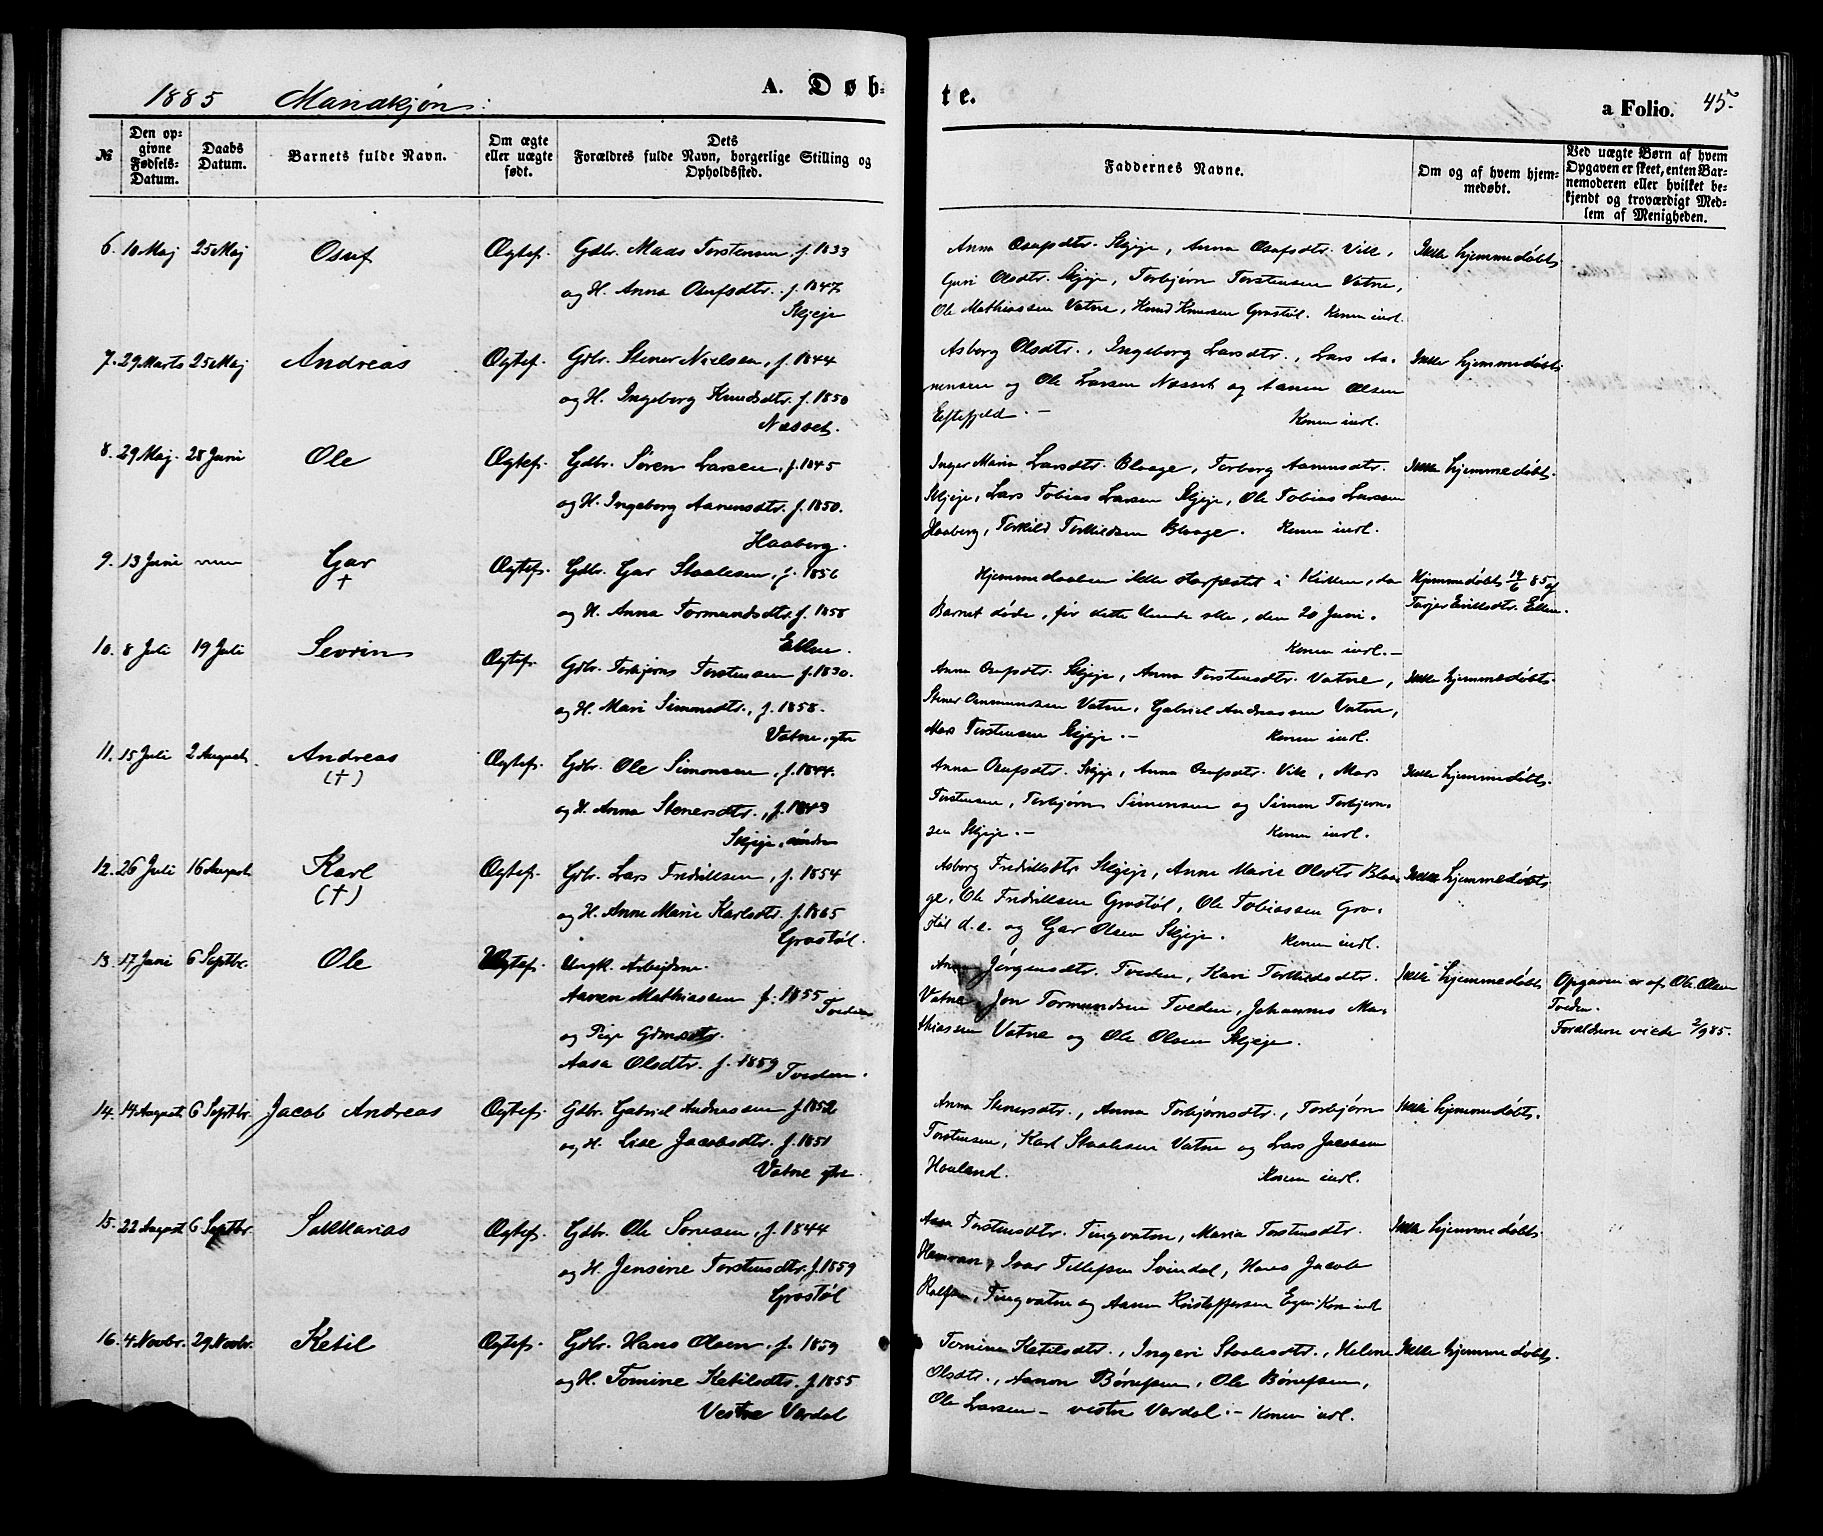 1885 Mandkjøn:
A. Døb-
te.
a Folio. 45.
№
Den op-
givne
Fødsels-
Datum.
Daabs
Datum.
Barnets fulde Navn.
Om ægte
eller uægte
født.
Dets
Forældres fulde Navn, borgerlige Stilling og
Opholdssted.
Faddernes Navne.
Om og af hvem hjem-
medøbt.
Ved uægte Børn af hvem
Opgaven er skeet, enten Bar-
nemoderen eller hvilket be-
kjendt og troværdigt Med-
lem af Menigheden.
6. 10 Maj 25 Maj Osuf Ægtef. Gdbr. Mads Torstensen f. 1833
og H. Anna Osufsdtr. f. 1847
Skjeje
Anna Osufsdtr. Skjeje, Anna Osufsdtr. Vik,
Guri Olsdtr. Skjeje, Torbjørn Torstensen Vatne,
Ole Mathiassen Vatne, Knud Knudsen Grostøl. Konen indl.
Ikke hjemmedøbt.
7. 29 Marts 25 Maj Andreas Ægtef. Gdbr. Stener Nielsen, f. 1844
og H. Ingeborg Knudsdtr. f. 1850
Næsset.
Asborg Olsdtr., Ingeborg Larsdtr., Lars Aa-
nensen og Ole Larsen Næsset og Aanen Olsen
Eftefjeld. – Konen indl.
Ikke hjemmedøbt.
8. 29 Maj. 28 Juni Ole Ægtef. Gdbr. Søren Larsen, f. 1845
og H. Ingeborg Aanensdtr. f. 1850.
Haaberg.
Inger Maria Larsdtr. Blaage, Torborg Aanensdtr.
Skjeje, Lars Tobias Larsen Skjeje, Ole Tobias Larsen
Haaberg, Torkild Torkildsen Blaage. Konen indl.
Ikke hjemmedøbt.
9. 13 Juni Gar
+
Ægtef. Gdbr. Gar Staalesen, f. 1856
og H. Anna Tormundsdtr. f. 1858
Hjemmedaaben ikke stadfæstet i Kirken, da
Barnet døde, før dette kunde ske, den 20 Juni.
Konen indl. –
Hjemmedøbt 19/6 85 af
10. 8 Juli 19 Juli Sevrin Ægtef. Gdbr. Torbjørn Torstensen f. 1830.
og H. Mari Simonsdtr., f. 1858.
Vatne, ytre
Anna Osufsdtr. Skjeje, Anna Torstensdtr. Vatne,
Stener Aanmundsen Vatne, Gabriel Andreassen Vatne,
Mas Torstensen Skjeje. – Konen indl.
Ikke hjemmedøbt.
11. 15 Juli 2 August. Andreas
(+)
Ægtef. Gdbr. Ole Simonsen, f. 1844.
og H. Anna Stenersdtr., f. 1843
Skjeje, søndre
Anna Osufsdtr. Skjeje, Anna Osufsdtr. Vik, Mas
Torstensen, Torbjørn Simonsen og Simon Torbjørn-
sen Skjeje. – Konen indl.
Ikke hjemmedøbt.
12. 26 Juli 16 August. Karl
(+)
Ægtef. Gdbr. Lars Fredriksen, f. 1854
og H. Anne Marie Karlsdtr. f. 1865
Grostøl.
Asborg Fredriksdtr. Skjeje, Anne Marie Olsdtr. Blaa-
ge, Ole Fredriksen Grostøl, Ole Tobiassen Gro-
støl d.e. og Gar Olsen Skjeje. Konen indl.
Ikke hjemmedøbt.
13. 17 Juni 6 Septbr. Ole Ægtef. Ungk. Arbejdsm.
Aanen Mathiassen f. 1855
Tveden
og Pige
Aasa Olsdtr. f. 1859
Tveden.
Jørgensdtr. Tveden, Kari Torkildsdtr.
Vatne, Jon Tormundsen Tveden, Johannes Ma-
thiassen Vatne og Ole Olsen Skjeje.
Ikke hjemmedøbt
Opgaven er af Ole Olsen
Tveden.
Forældrene viede 2/9 85.
14. 14 August 6 Septbr. Jacob Andreas Ægtef. Gdbr. Gabriel Andreassen f. 1852
og H. Lise Jacobsdtr. f. 1851
Vatne ytre
Anna Stenersdtr., Anna Torbjørnsdtr., Torbjørn
Torstensen, Karl Staalesen Vatne og Lars Jacobsen
Houland. Konen indl.
Ikke hjemmedøbt.
15. 22 August 6 Septbr. Sakkarias Ægtef. Gdbr. Ole Sørensen, f. 1844
og H. Jensine Torstensdtr. f. 1859
Grostøl
Aasa Torstensdtr. Tingvatne, Maria Torstensdtr.
Ivar Tellefsen Svindal, Hans Jacob
Tingvatne og Aanen Kristoffersen
Ikke hjemmedøbt.
16. 4. Novbr. 29 Novbr. Ketil Ægtef. Gdbr. Hans Olsen, f. 1859
og H. Tomine Ketilsdtr. f. 1855
Vestre Vardal
Tomine Ketilsdtr., Ingeri Staalesdtr., Helene
Olsdtr., Aanon Børufsen, Ole Børufsen,
Ole Larsen – vestre Vardal. – Konen indl.
Ikke hjemmedøbt.